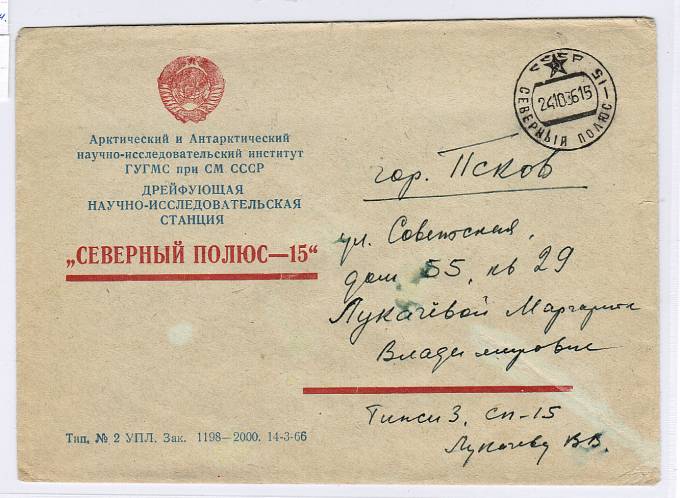 СССР
СЕВЕРНЫЙ ПОЛЮС-15
Арктический и Антарктический
научно-исследовательский институт
ГУГМС при СМ СССР
ДРЕЙФУЮЩАЯ
НАУЧНО-ИССЛЕДОВАТЕЛЬСКАЯ
СТАНЦИЯ
„СЕВЕРНЫЙ ПОЛЮС—15“
гор. Псков
ул. Советская,
дом 55, кв 29
Лукачёвой Маргарите
Владимировне
Тикси 3, СП-15
Лукачеву В.В.
Тип. № 2 УПЛ. Зак. 1198—2000. 14-3-66